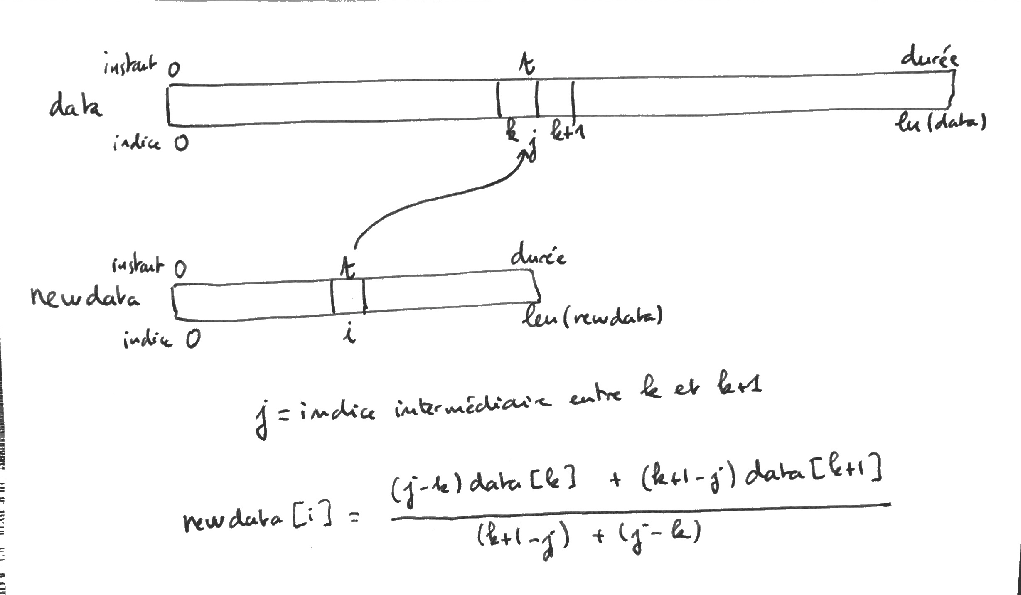 instant 0 t durée
data
indice 0 k j k+1 len(data)
instant 0 t durée
newdata
indice 0 i len(newdata)
j = indice intermédiaire entre k et k+1
newdata[i] = (j-k) data[k] + (k+1-j) data[k+1]
(k+1-j) + (j-k)